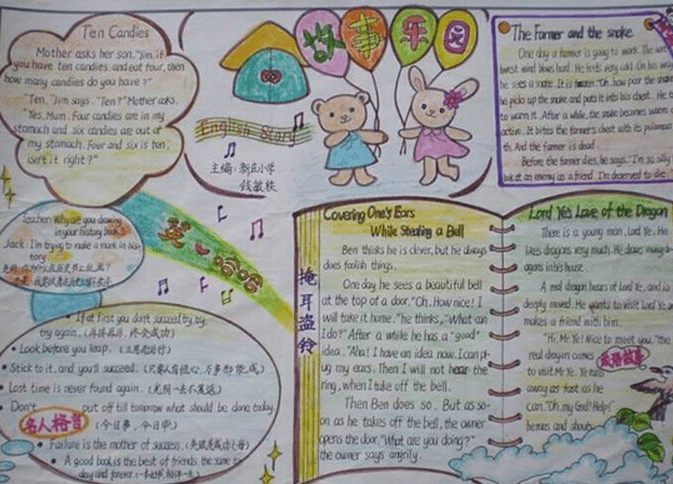 Ten Candies
Mother asks her son, "Jim, if
you have ten candies, and eat four, then
how many candies do you have?"
"Ten," Jim says. "Ten?" Mother asks.
Yes, Mum. Four candies are in my
stomach and six candies are out of
my stomach. Four and six is ten,
isn't it right?"
故事乐园
English Story
主编:新庄小学
钱敏轶
The Farmer and the snake
One day a farmer is going to work. The
west wind blows hard. He feels very cold. On his way
he sees a snake. It is frozen "Oh, how poor the snake
he picks up the snake and puts it into his chest. He
to warm it. After a while, the snake becomes warm
active. It bites the farmer's chest with its poisonous
th. And the farmer is dead.
Before the farmer dies, he says, "I'm so silly
look at an enemy as a friend. I'm deserved to die
Teacher: Why are you drawing
in your history book?
Jack: I'm trying to make a mark in his-
tory.
英
哈哈
If at first you don't succeed, try, try,
try again. (再接再厉,终会成功)
Look before you leap. (三思而后行)
Stick to it, and you'll succeed. (只要人有恒心,万事都能成)
Lost time is never found again. (光阴一去不复返)
Don't put off till tomorrow what should be done today.
名人格言
(今日事,今日毕)
Failure is the mother of success. (失败是成功之母)
A good book is the best of friends, the same to-
day and forever.
掩耳盗铃
Covering One's Ears
While Stealing a Bell
Ben thinks he is clever, but he always
does foolish things.
One day he sees a beautiful bell
at the top of a door. "Oh, How nice! I
will take it home." he thinks, "What can
I do?" After a while he has a "good"
idea. "Aha! I have an idea now. I can pl-
ug my ears. Then I will not hear the
ring, when I take off the bell.
Then Ben does so. But as so-
on as he takes off the bell, the owner
opens the door. "What are you doing?"
the owner says angrily.
Lord Ye's Love of the Dragon
There is a young man, Lord Ye. He
likes dragons very much. He draws many dr-
agons in his house.
A real dragon hears of Lord Ye, and is
deeply moved. He wants to visit Lord Ye and
makes a friend with him.
"Hi, Mr Ye! Nice to meet you." the
real dragon comes
成语故事
to visit Mr Ye. Ye runs
away as fast as he
can. "Oh, my God! Help!"
he runs and shouts.